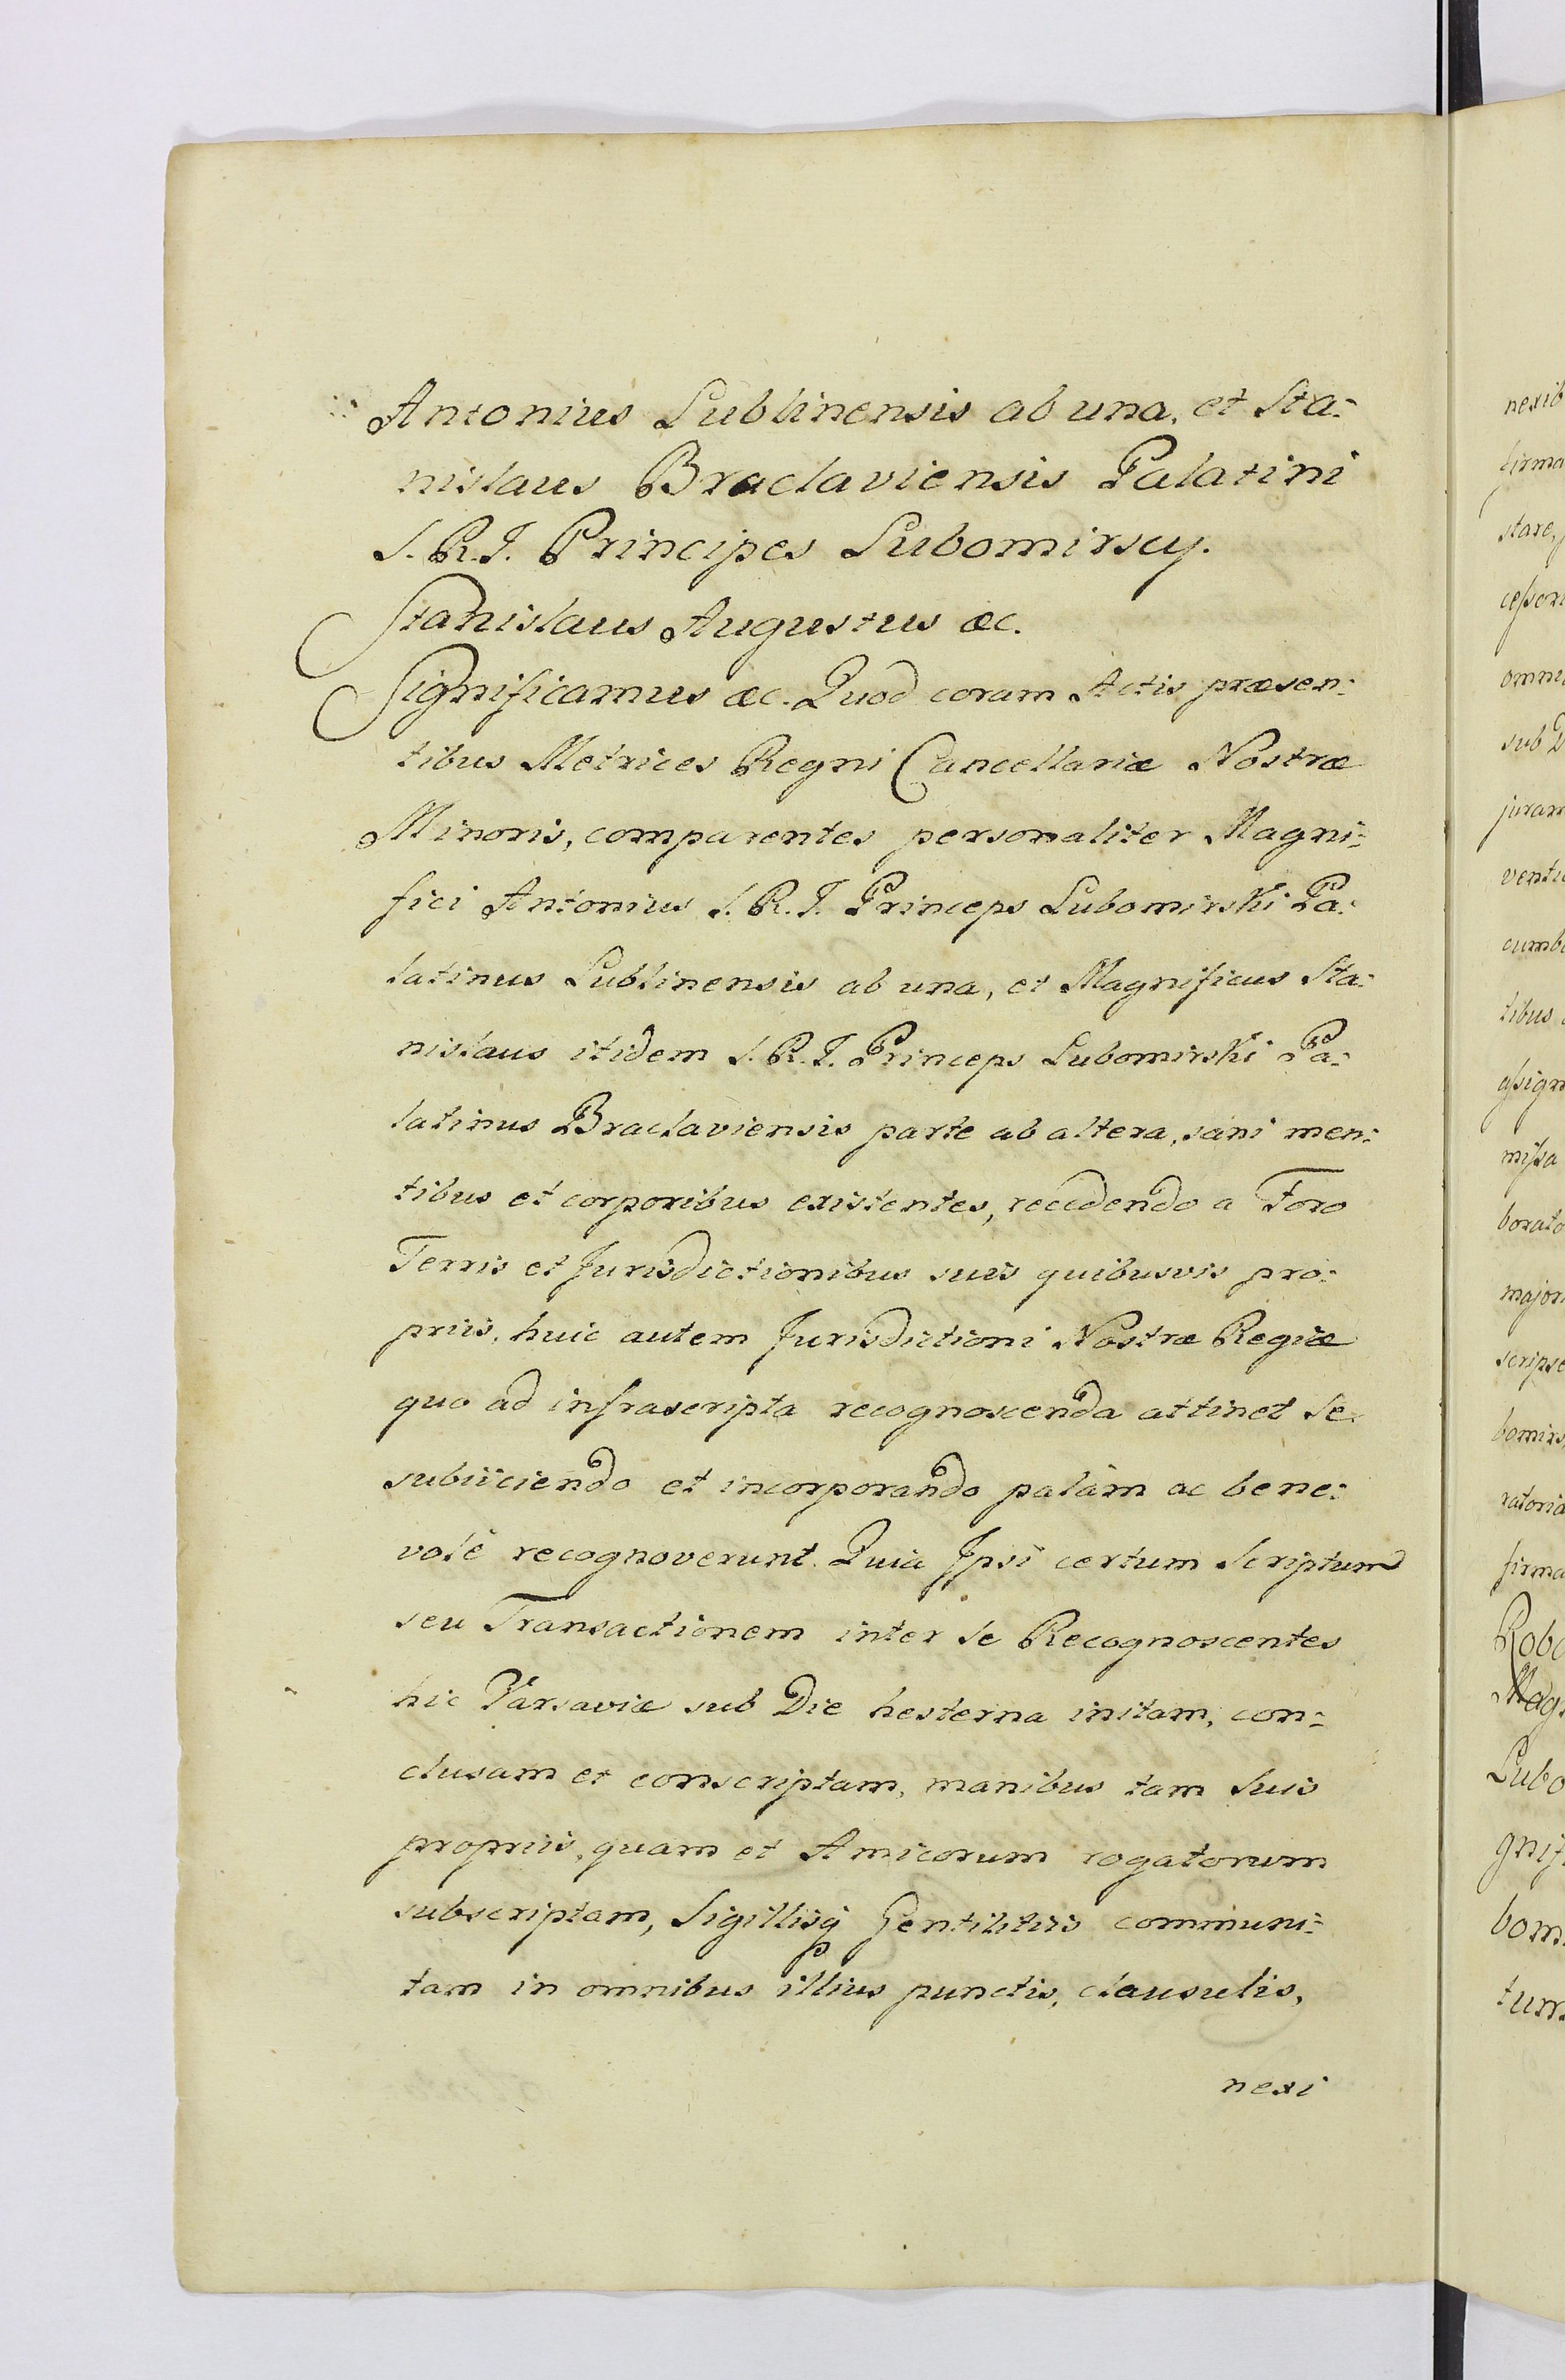 Antonius Lublinensis ab una, et Sta:
nislaus Braclaviensis Palatini
S. R. I. Principes Lubomirscy.
Stanislaus Augustus &c.
Significamus &c. Quod coram Actis præsen:
tibus Metrices Regni Cancellariæ Nostræ
Minoris, comparentes personaliter Magni:
fici Antonius S. R. I. Princeps Lubomirski Pa:
latinus Lublinensis ab una, et Magnificus Sta:
nislaus itidem S. R. I. Princeps Lubomirski Pa:
latinus Braclaviensis parte ab altera, sani men:
tibus et corporibus existentes, recedendo a Foro
Terris et Jurisdictionibus suis quibusvis pro:
priis, huic autem Jurisdictioni Nostræ Regiæ
quo ad infrascripta recognoscenda attinet Se
subiiciendo et incorporando palàm ac bene:
volè recognoverunt. Quia Ipsi certum Scriptum
seu Transactionem inter Se Recognoscentes
hic Varsaviæ sub Die hesterna initam, con:
clusam et conscriptam, manibus tam Suis
propriis, quam et Amicorum rogatorum
subscriptam, Sigillisq Gentilitiis communi:
tam in omnibus illius punctis, clausulis,
nexi
nexib
firma
stare,
cessori
omni
sub
juram
venti
cumbe
tibus
assign
missa
borato
major
scripse
bomirs
ratoria
firma
Robo
Mag
Lubo
gnifi
bom
tum